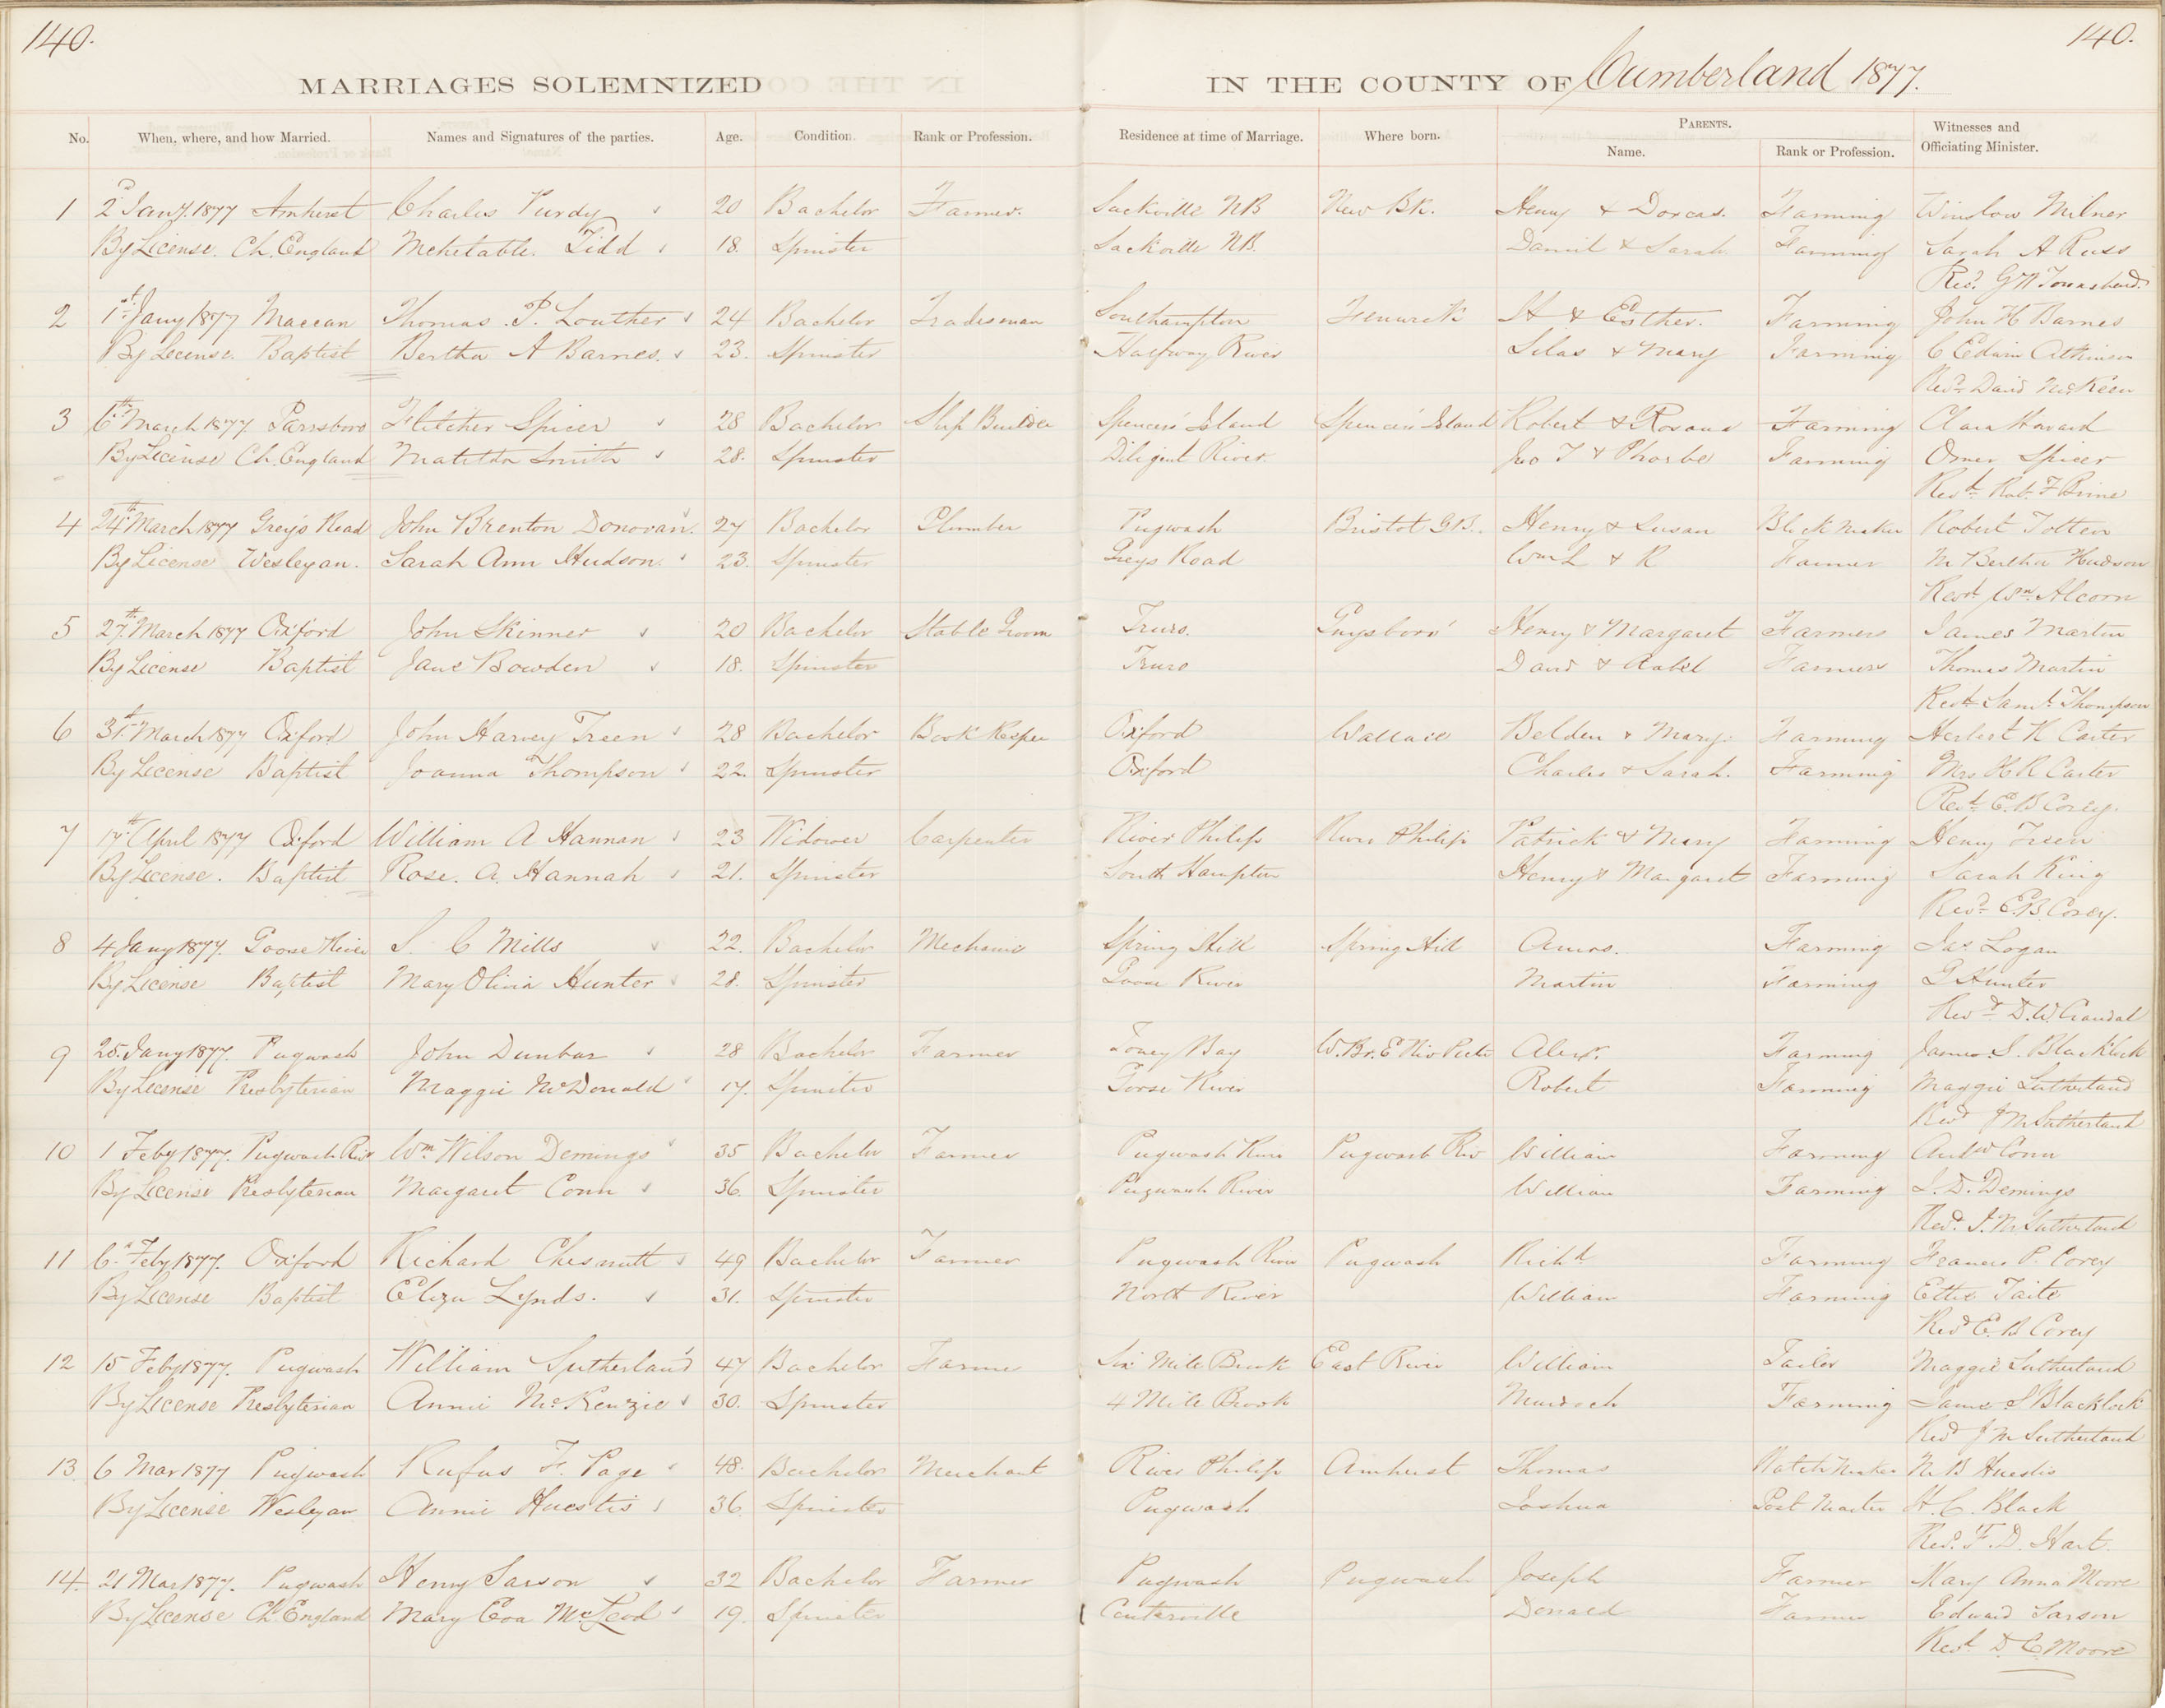 140.
140.
MARRIAGES SOLEMNIZED
IN THE COUNTY OF Cumberland 1877.
No. When, where, and how Married. Names and Signatures of the parties. Age. Condition. Rank or Profession. Residence at time of Marriage. Where born. PARENTS. Name. Rank or Profession. Witnesses and Officiating Minister.
1 2d Jany. 1877 Amherst Charles Purdy 20 Bachelor Farmer. Sackville NB New BK. Henry & Dorcas. Farming Winslow Milner
By License. Ch. England Mehetable Tidd 18. Spinster Sackville NB. Daniel & Sarah Farming Sarah A Russ
Rev. G Townshend
2 1st Jany 1877 Maccan Thomas P. Louther 24 Bachelor Tradesman Southampton Fenwick H & Esther. Farming John H Barnes
By License. Baptist Bertha A Barnes. 23. Spinster Halfway River Silas & Mary Farming C Edwin Atkinson
Revd David McKeen
3 6th March 1877 Parrsboro Fletcher Spicer 28 Bachelor Ship Builder Spencers Island Spencers Island Robert & Roxana Farming Clara Havard
By License Ch. England Matilda Smith 28. Spinster Diligent River Jno T & Phoebe Farming Omer Spicer
Revd. Rob. F Brine
4 24th March 1877 Greys Road John Brenton Donovan. 27 Bachelor Plumber Pugwash Bristol GB. Henry & Susan Block Maker Robert Totten
By License Wesleyan. Sarah Ann Hudson 23. Spinster Greys Road Wm L & R Farmer M Bertha Hudson
Revd Wm. Alcorn
5 27th March 1877 Oxford John Skinner 20 Bachelor Stable Groom Truro. Guysboro' Henry & Margaret Farmers James Martin
By License Baptist Jane Bowden 18. Spinster Truro David & Rabel Farmers Thomas Martin
Revd Saml. Thompson
6 31st March 1877 Oxford John Harvey Treen 28 Bachelor Book Keeper Oxford Wallace Belden & Mary. Farming Herbert K Carter
By License Baptist Joanna Thompson 22. Spinster Oxford Charles & Sarah. Farming Mrs H K Carter
Revd. E. B Corey.
7 17th April 1877 Oxford William A Hannan 23 Widower Carpenter River Philip River Philip Patrick & Mary Farming Henry Treen
By License. Baptist Rose. A. Hannah 21. Spinster South Hampton Henry & Margaret Farming Sarah King
Revd. E.B. Corey.
8 4 Jany 1877. Goose River S. C Mills 22. Bachelor Mechanic Spring Hill Spring Hill Amos. Farming Jas Logan
By License Baptist Mary Olivia Hunter 28. Spinster Goose River Martin Farming G Hunter
Revd. D.W. Crandal
9 25. Jany 1877. Pugwash John Dunbar 28 Bachelor Farmer Toney Bay W. Br. E Riv Pictu Alexr. Farming James S. Blacklock
By License Presbyterian Maggie McDonald 17. Spinster Goose River Robert Farming Maggie Sutherland
Revd J M Sutherland
10 1 Feby 1877. Pugwash Riv Wm Wilson Demings 35 Bachelor Farmer Pugwash River Pugwash Riv William Farming Andw Conn
By License Presbyterian Margaret Conn 36. Spinster Pugwash River William Farming S. D. Demings
Revd. J. M Sutherland
11 6. Feby 1877. Oxford Richard Chesnutt 49 Bachelor Farmer Pugwash River Pugwash Richd Farming Frances P. Corey
By License Baptist Eliza Lynds. 31. Spinster North River William Farming Ettie Taite
Revd E. B Corey
12 15 Feby 1877. Pugwash William Sutherland 47 Bachelor Farmer Six Mile Brook East River William Tailor Maggie Sutherland
By License Presbyterian Annie McKenzie 30. Spinster 4 Mile Brook Murdoch Farming James S Blacklock
Revd J M Sutherland
13 6 Mar 1877 Pugwash Rufus F. Page 48. Bachelor Merchant River Philip Amherst Thomas Watch Maker M B Huestis
By License Wesleyan Annie Huestis 36 Spinster Pugwash Joshua Post Master H. C. Black
Rev. F. D. Hart.
14. 21 Mar 1877. Pugwash Henry Sarson 32 Bachelor Farmer Pugwash Pugwash Joseph Farmer Mary Anna Moore
By License Ch England Mary Eva McLeod 19. Spinster Centerville Donald Farmer Edward Sarson
Revd D. C. Moore